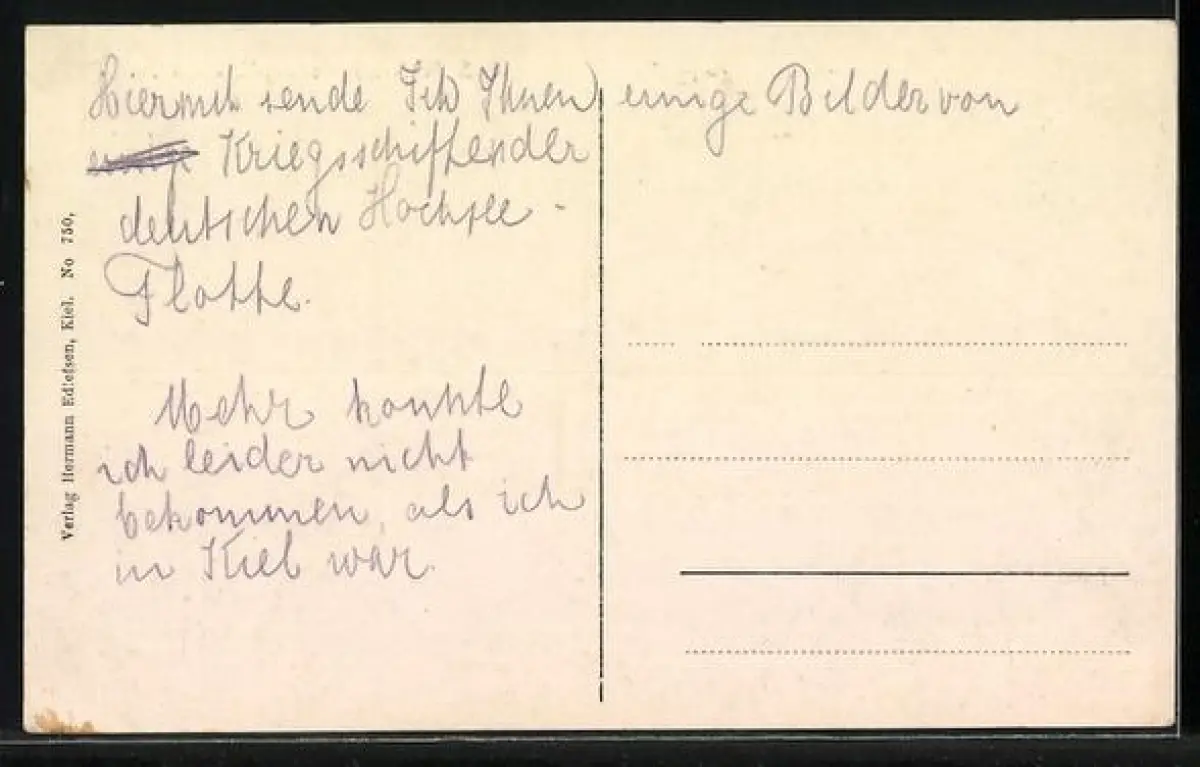 Hiermit sende Ich Ihnen einige Bilder von
Kriegsschiffen der
deutschen Hochsee-
Flotte.
Mehr konnte
ich leider nicht
bekommen, als ich
in Kiel war.
Verlag Hermann Edlefsen, Kiel. No 750,